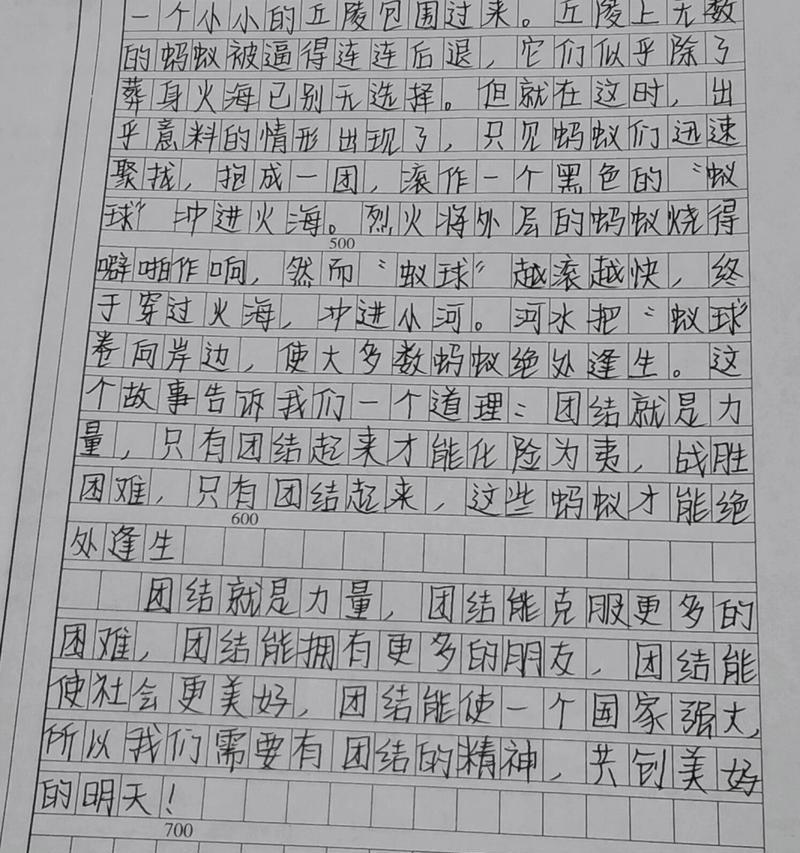 一个小小的丘陵包围过来。丘陵上无数
的蚂蚁被逼得连连后退，它们似乎除了
葬身火海已别无选择。但就在这时，出
乎意料的情形出现了，只见蚂蚁们迅速
聚找，抱成一团，滚作一个黑色的“蚁
球”冲进火海。烈火将外层的蚂蚁烧得
500
噼啪作响，然而“蚁球”越滚越快，终
于穿过火海，冲进小河。河水把“蚁球”
卷向岸边，使大多数蚂蚁绝处逢生。这
个故事告诉我们一个道理：团结就是力
量，只有团结起来才能化险为夷，战胜
困难，只有团结起来，这些蚂蚁才能绝
600
处逢生
团结就是力量，团结能克服更多的
困难，团结能拥有更多的朋友，团结能
使社会更美好，团结能使一个国家强大，
所以我们需要有团结的精神，共创美好
的明天！
700